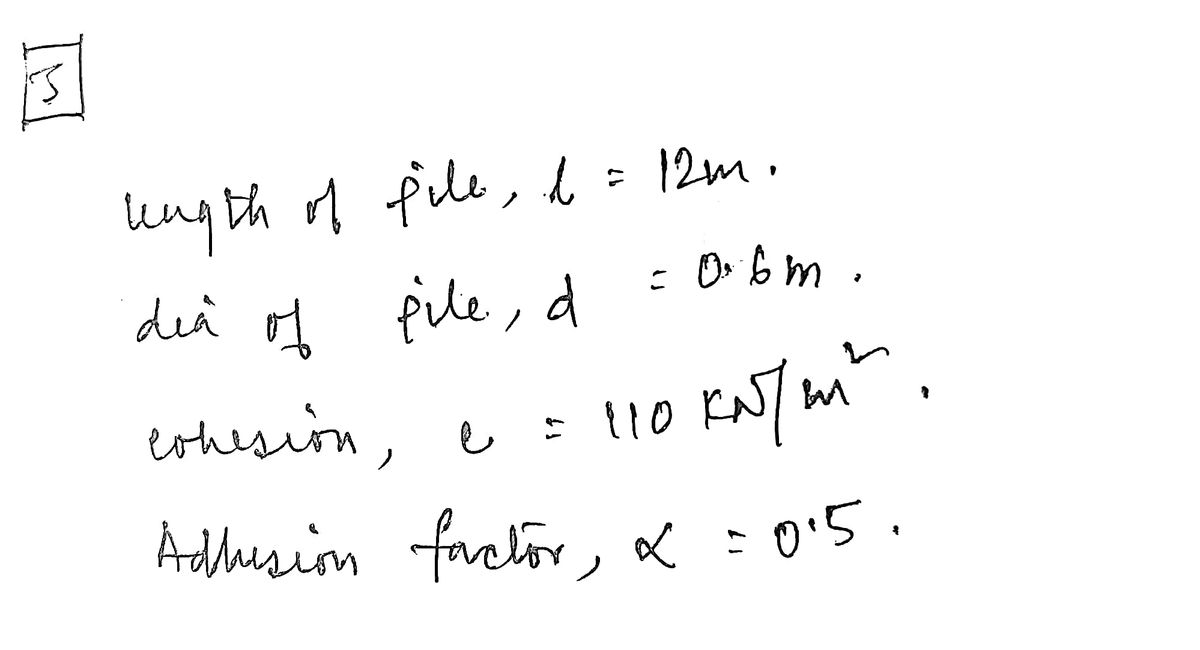 3
length of pile, l = 12m.
dia of pile, d = 0.6m.
cohesion, c = 110 KN/m².
Adhesion factor, α = 0.5.